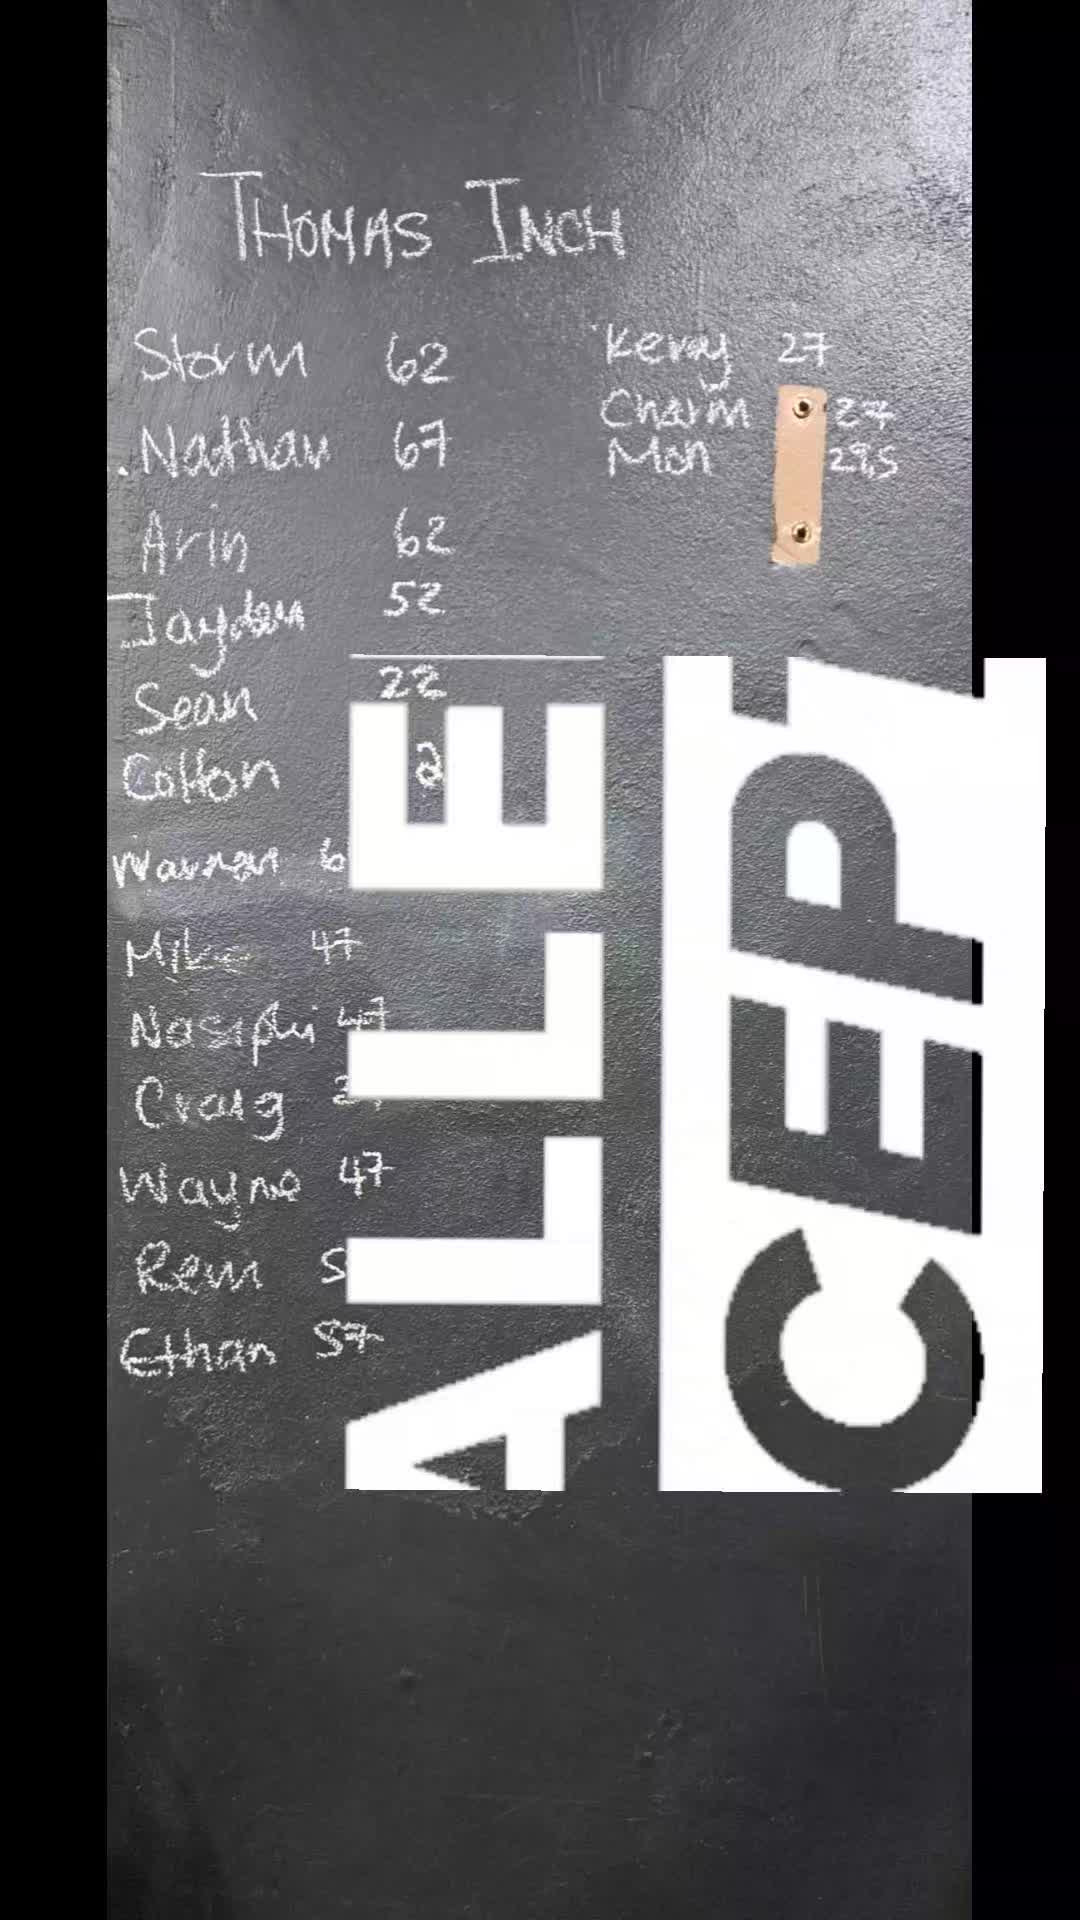 THOMAS INCH
Storm 62
Nathan 67
Arin 62
Jayden 52
Sean 22
Colton
Warren
Mike 47
Nasiphi 47
Craig
Wayne 47
Rem
Ethan 57
Kerry 27
Charm 27
Mon 29,5
ALLE
CEP